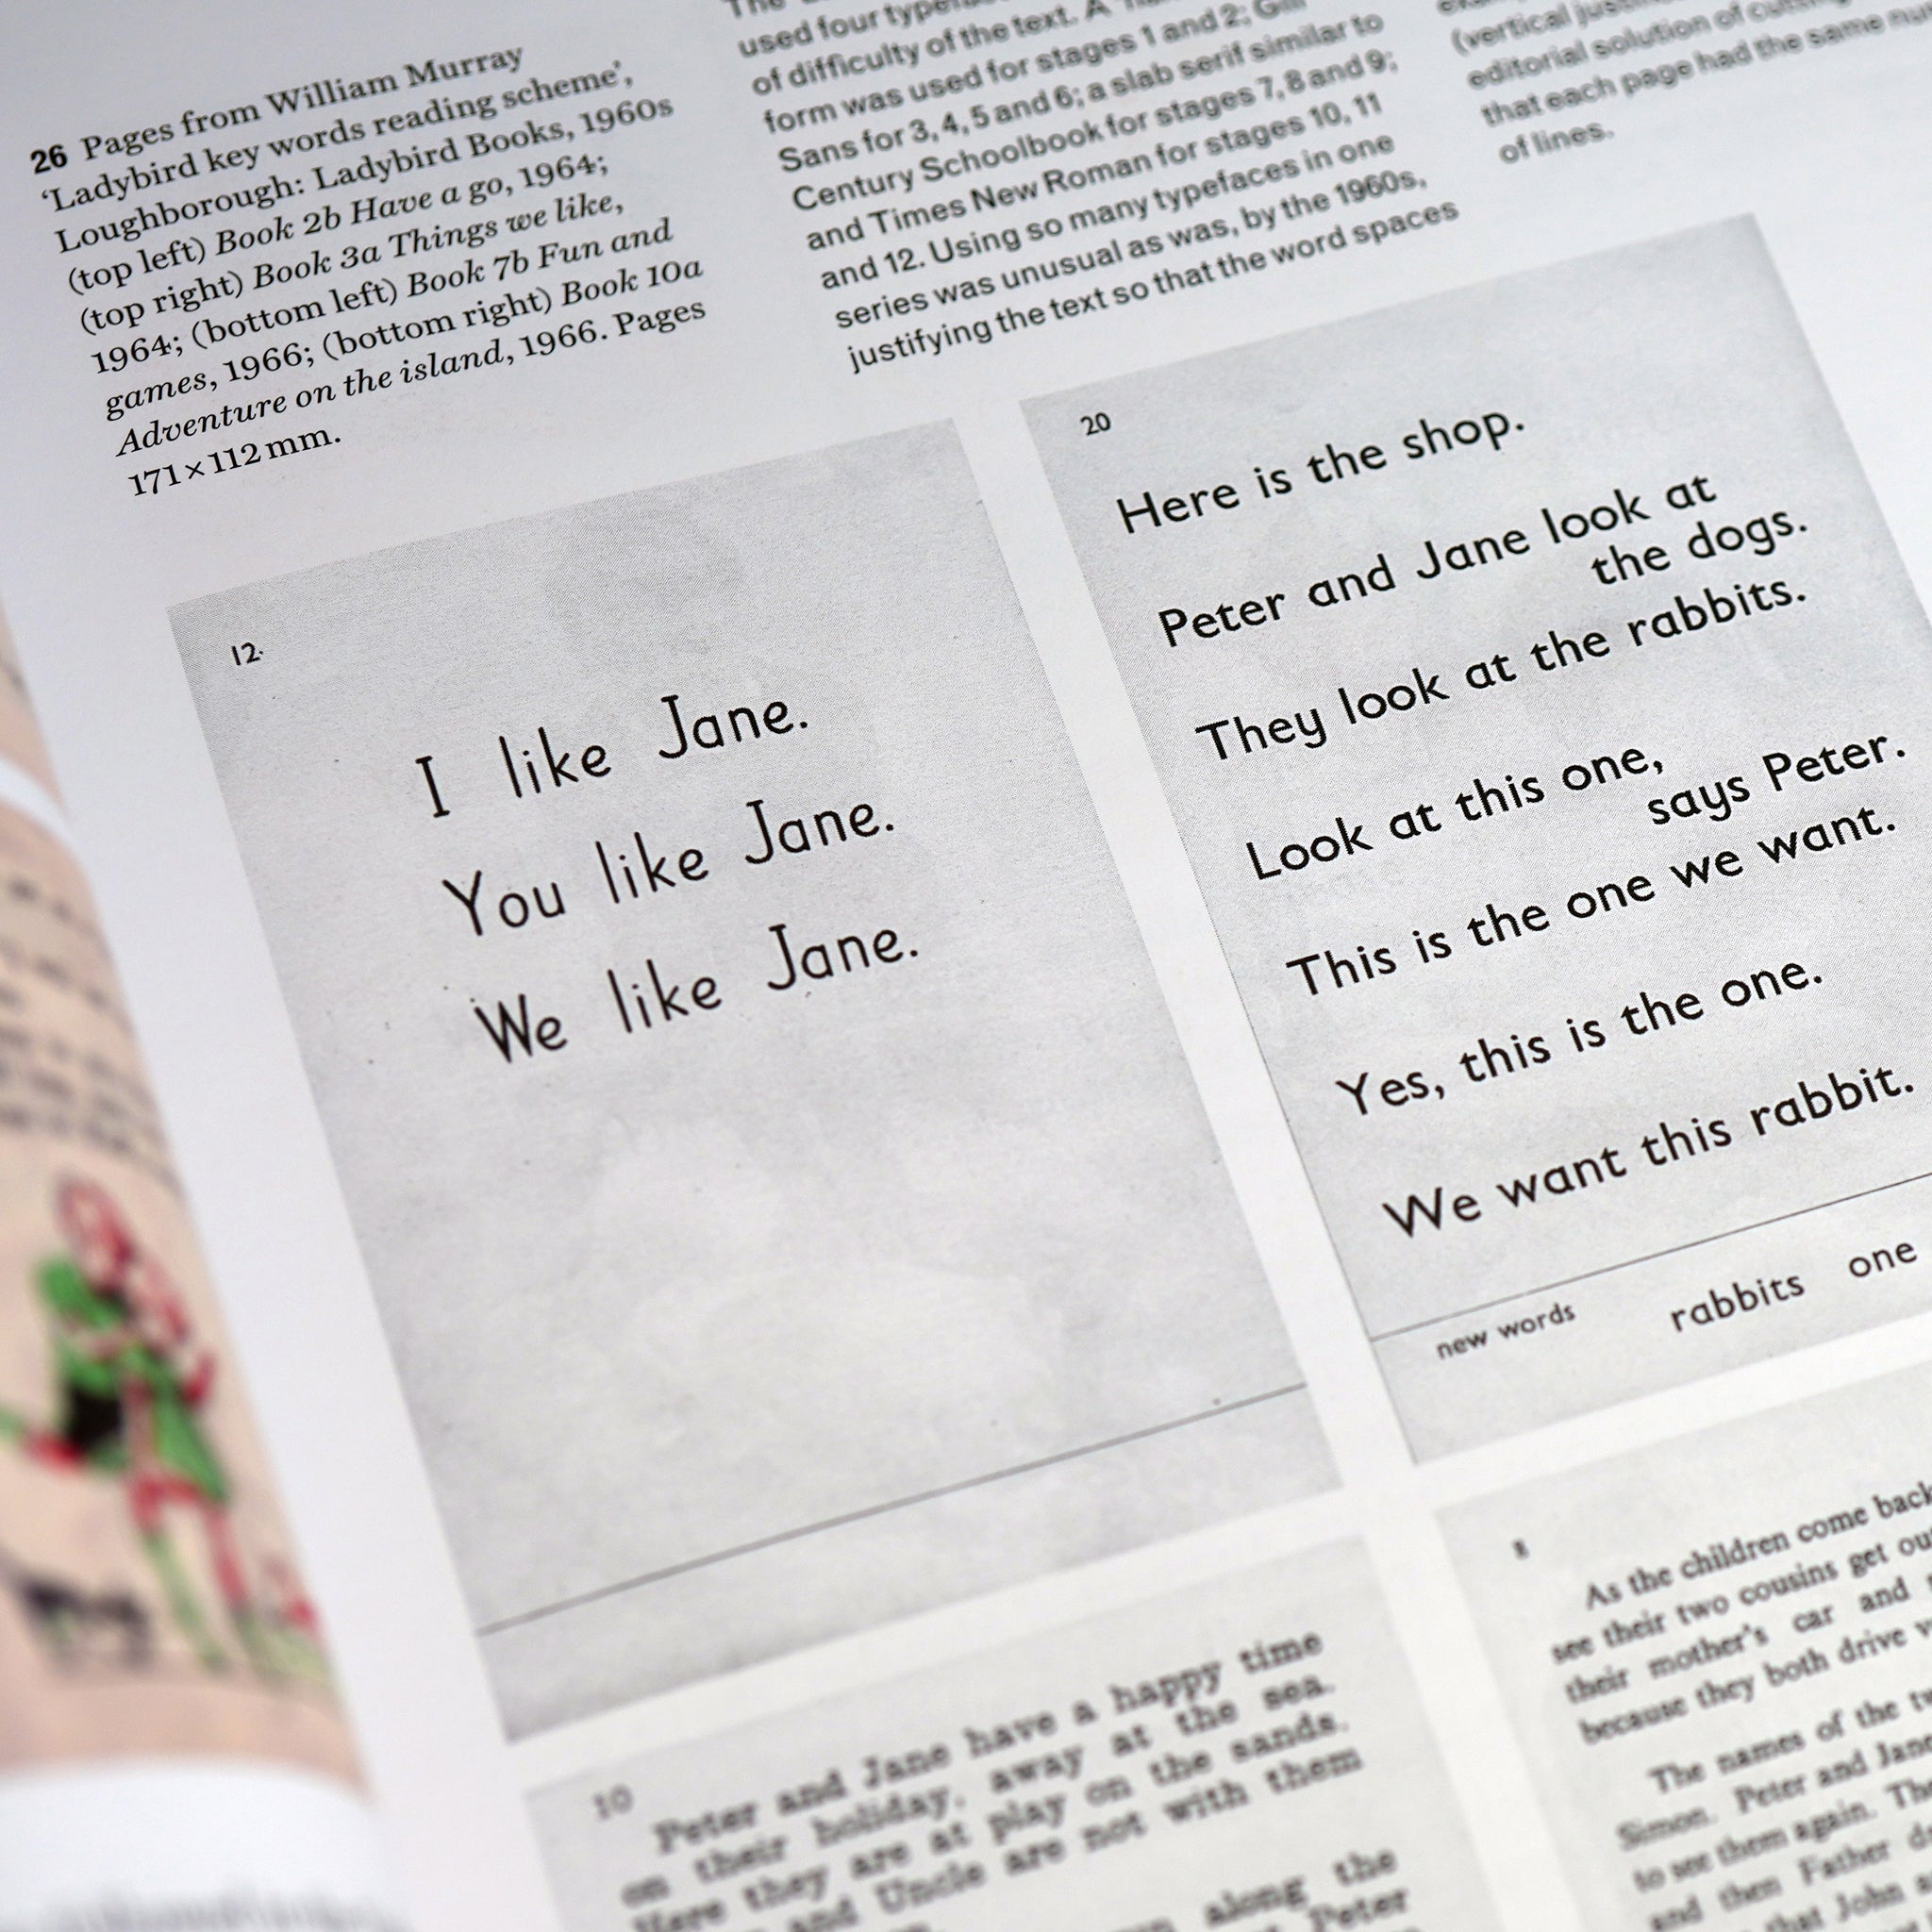 26 Pages from William Murray
‘Ladybird key words reading scheme’,
Loughborough: Ladybird Books, 1960s
(top left) Book 2b Have a go, 1964;
(top right) Book 3a Things we like,
1964; (bottom left) Book 7b Fun and
games, 1966; (bottom right) Book 10a
Adventure on the island, 1966. Pages
171×112mm.
The
used four
of difficulty of the text. A
form was used for stages 1 and 2; Gill
Sans for 3, 4, 5 and 6; a slab serif similar to
Century Schoolbook for stages 7, 8 and 9;
and Times New Roman for stages 10, 11
and 12. Using so many typefaces in one
series was unusual as was, by the 1960s,
justifying the text so that the word spaces
(vertical
editorial solution of
that each page had the same
of lines.
12
I like Jane.
You like Jane.
We like Jane.
20
Here is the shop.
Peter and Jane look at
the dogs.
They look at the rabbits.
Look at this one,
says Peter.
This is the one we want.
Yes, this is the one.
We want this rabbit.
new words rabbits one
10
Peter and Jane have a happy time
on their holiday, away at the sea.
Here they are at play on the sands.
and Uncle are not with them
along the
Peter
8
As the children come back
see their two cousins get
their mother's car and
because they both drive
The names of the
Simon. Peter and Jane
to see them again.
and then Father
that John